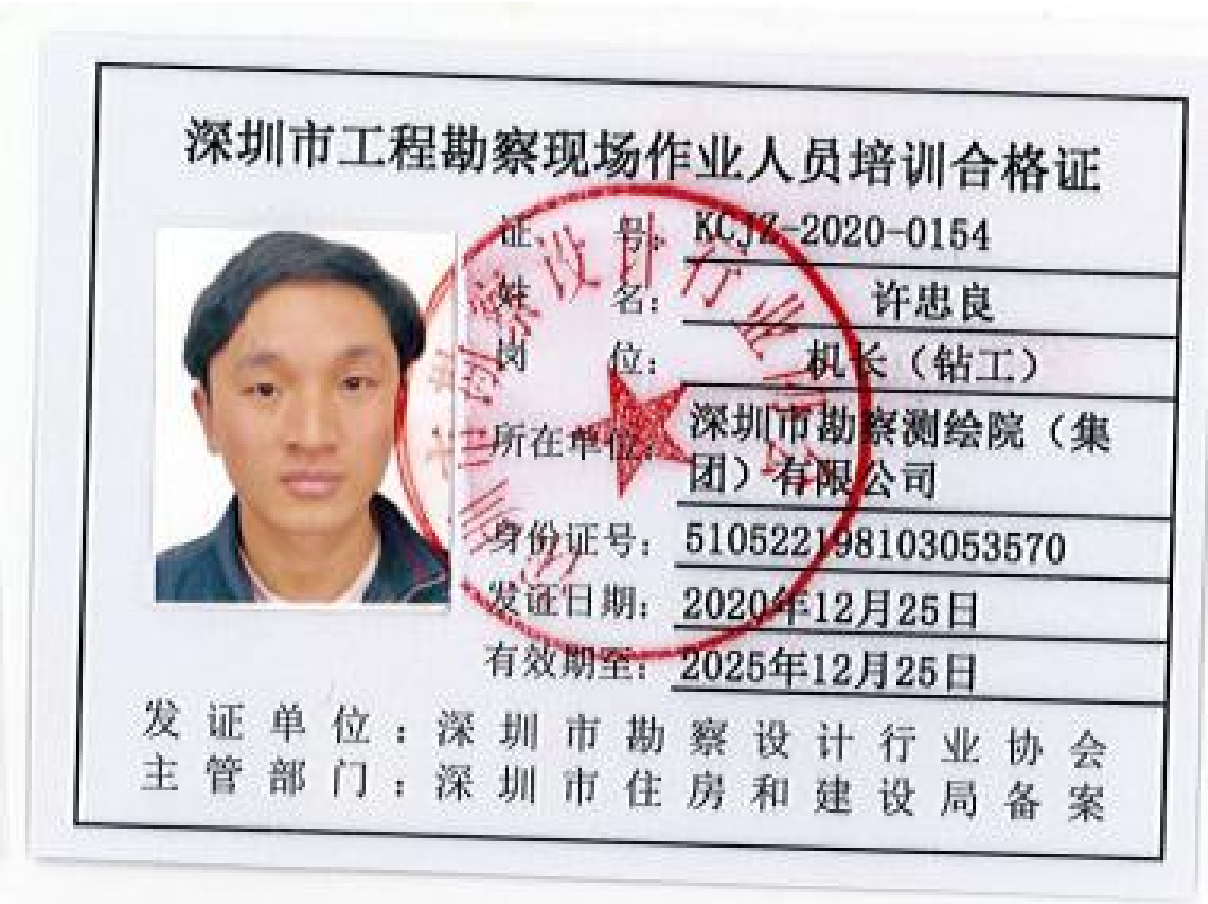 深圳市工程勘察现场作业人员培训合格证
证 号: KCJZ-2020-0154
姓 名: 许忠良
岗 位: 机长（钻工）
所在单位: 深圳市勘察测绘院（集
团）有限公司
身份证号: 510522198103053570
发证日期: 2020年12月25日
有效期至: 2025年12月25日
发证单位:深圳市勘察设计行业协会
主管部门:深圳市住房和建设局备案